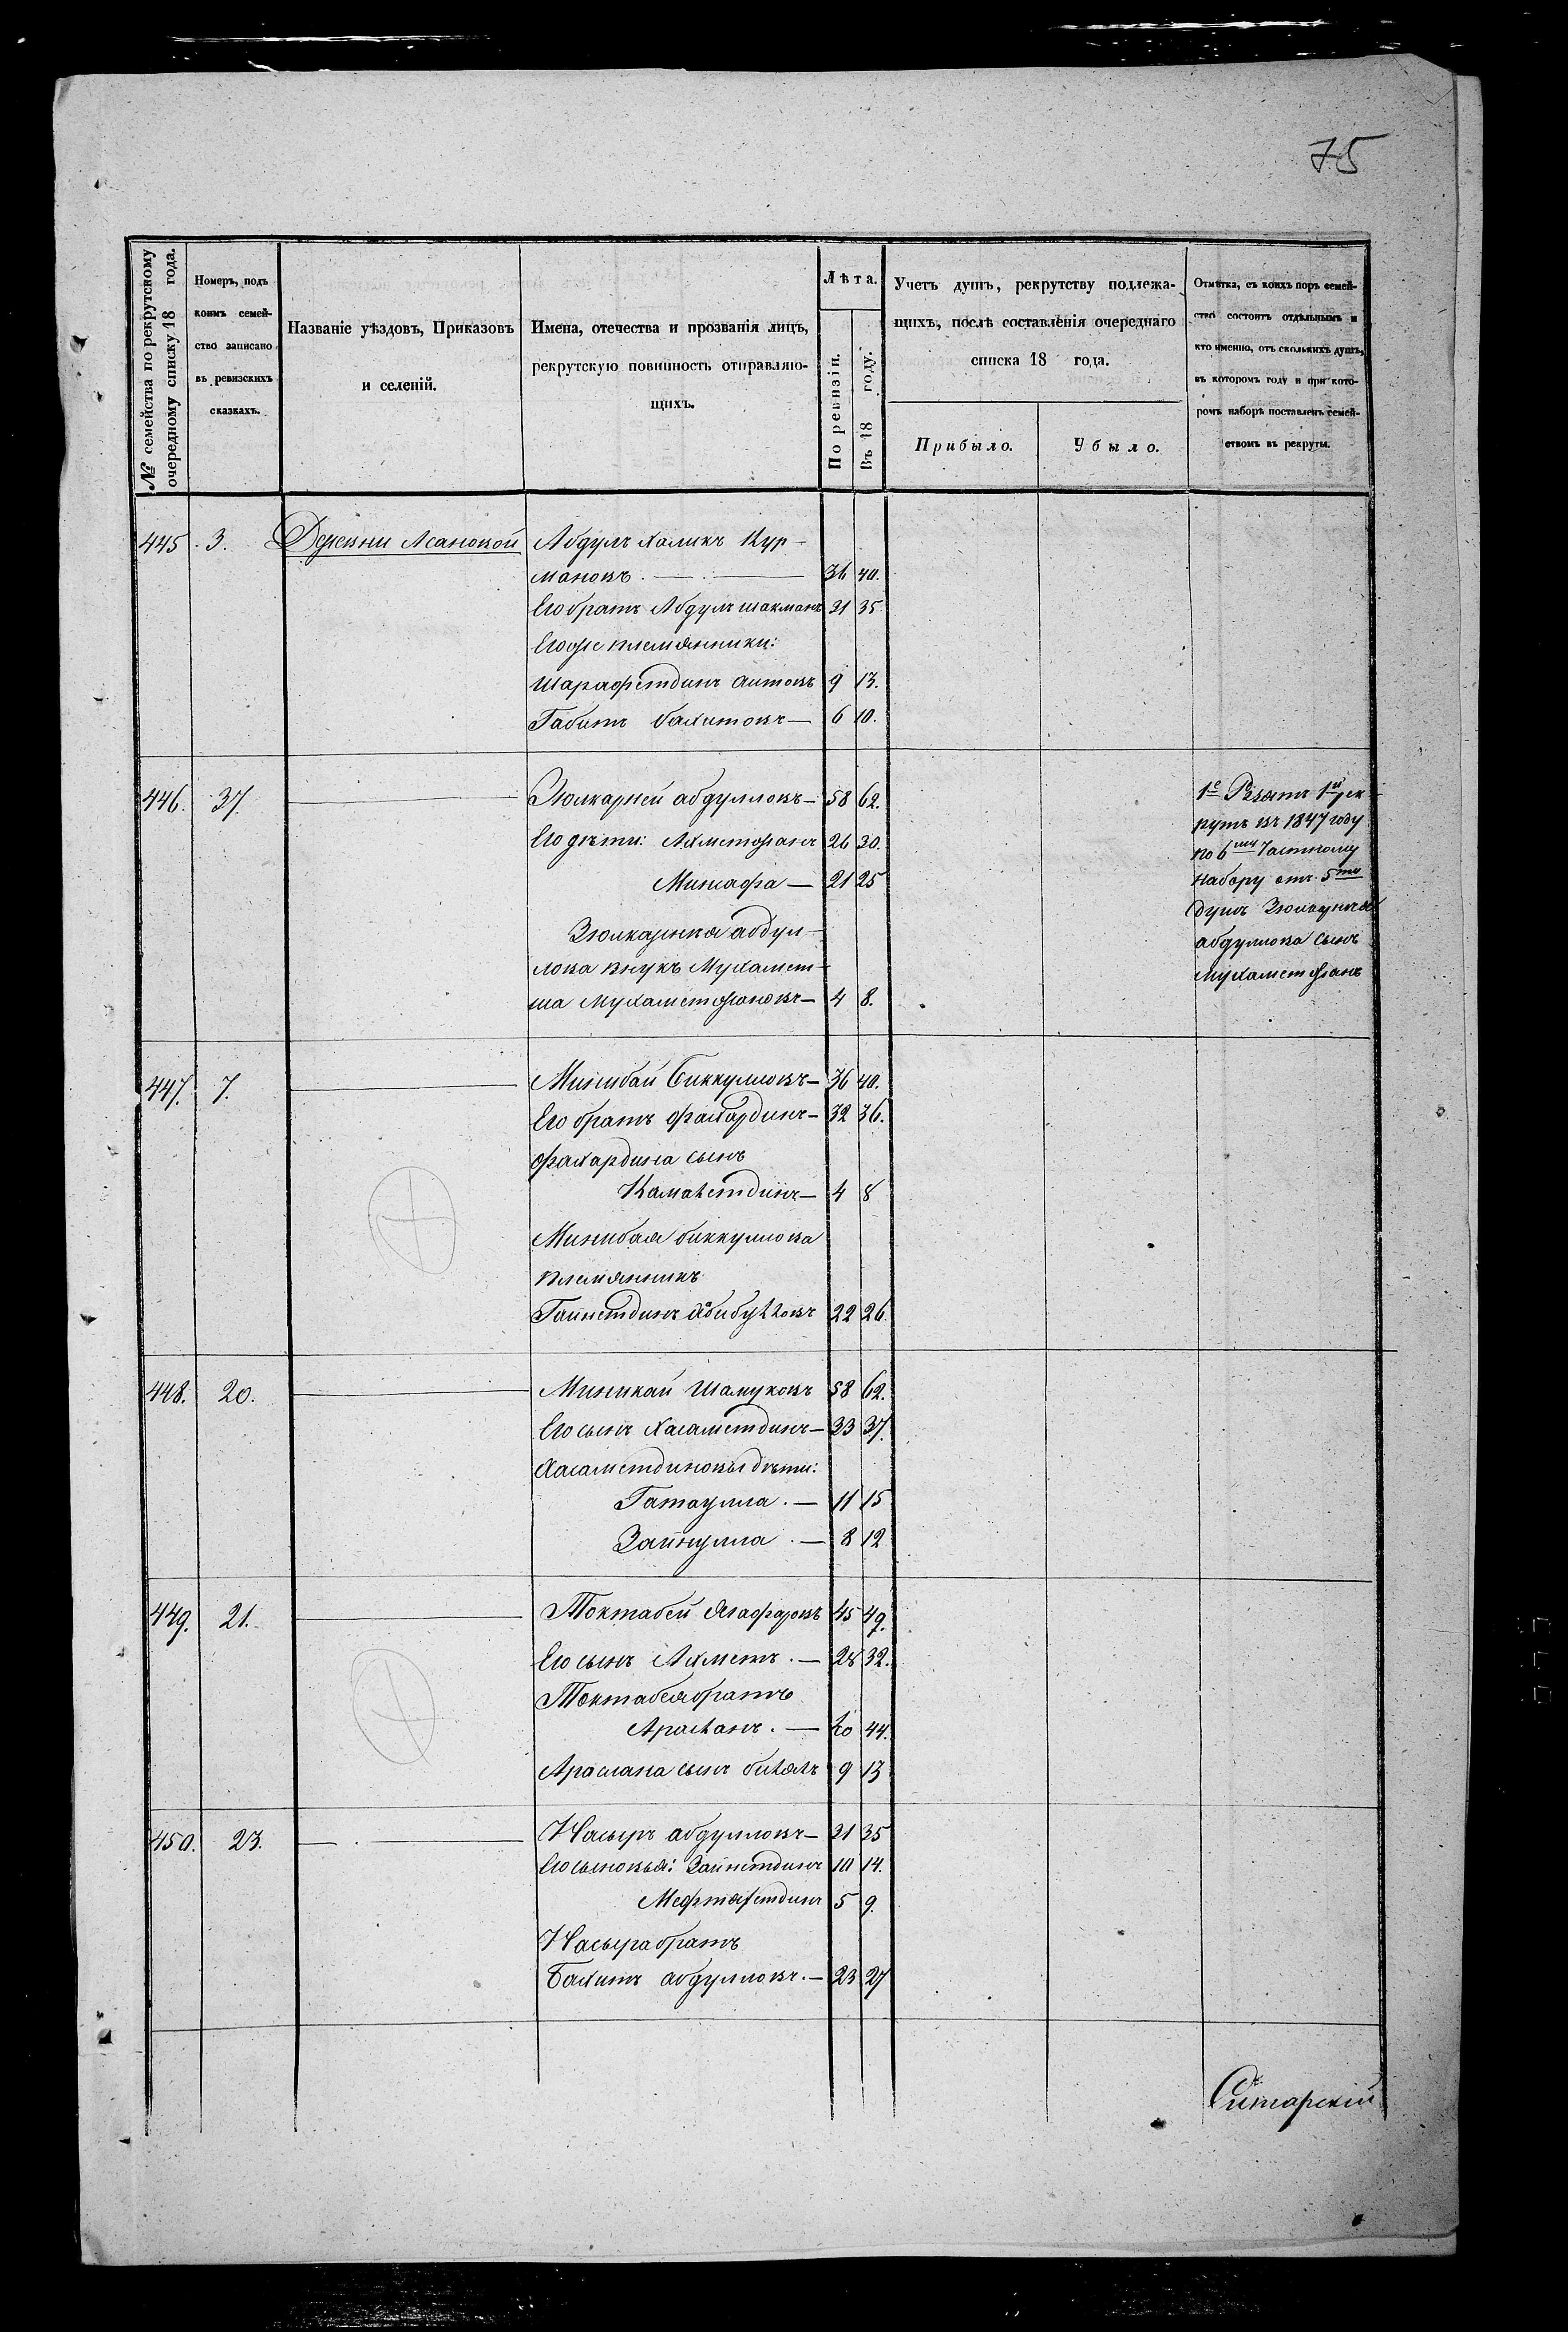 75
№ семейства по рекрутскому
очередному списку 18 года.
Номеръ, подъ
коимъ семей-
ство записано
въ ревизскихъ
сказкахъ.
Названіе уѣздовъ, Приказовъ
и селеній.
Имена, отечества и прозванія лицъ,
рекрутскую повинность отправляю-
щихъ.
Лѣта.
По ревизіи.
Въ 18 году.
Учетъ душъ, рекрутству подлежа-
щихъ, послѣ составленія очереднаго
списка 18 года.
Прибыло.
Убыло.
Отмѣтка, съ коихъ поръ семей-
ство состоитъ отдѣльнымъ и
кто именно, отъ сколькихъ душъ,
въ которомъ году и при кото-
ромъ наборѣ поставленъ семей-
ствомъ въ рекруты.
445. 3. Деревни Асановой Абдулъ Халикъ Кур-
мановъ. 36 40.
Его братъ Абдулъ 31 35
Его же племянники:
Шарафетдинъ Аитовъ 9 13.
Габитъ Бахитовъ 6 10.
446. 37. Зюлкарней Абдулловъ 58 62.
Его дѣти: Ахметжанъ 26 30.
21 25
Зюлкарнея Абдул-
лова внукъ Мухамет-
ша Мухаметжановъ 4 8.
1е Взятъ 1й рек-
рутъ въ 1847 году
по 6му Частному
набору отъ 5ти
душъ Зюлкарнея
Абдуллова сынъ
Мухаметжанъ
447. 7. Минибай Биккуловъ 36 40.
Его братъ Фахардинъ 32 36.
Фахардина сынъ
Камалетдинъ 4 8
Минибая Биккулова
племянникъ
Гайнетдинъ Хабибулловъ 22 26.
448. 20. Миникай 58 62.
Его сынъ Хасаметдинъ 33 37.
Хасаметдиновы дѣти:
Гатаулла. 11 15
Зайнулла. 8 12
449. 21. Токтабей Ягафаровъ 45 49.
Его сынъ Ахметъ. 28 32.
Токтабея братъ
Арасланъ. 40 44.
Араслана сынъ Билялъ 9 13
450. 23. Насыръ Абдулловъ 31 35
Его сыновья: Зайнетдинъ 10 14.
Мефтахетдинъ 5 9.
Насыра братъ
Бахитъ Абдулловъ. 23 27